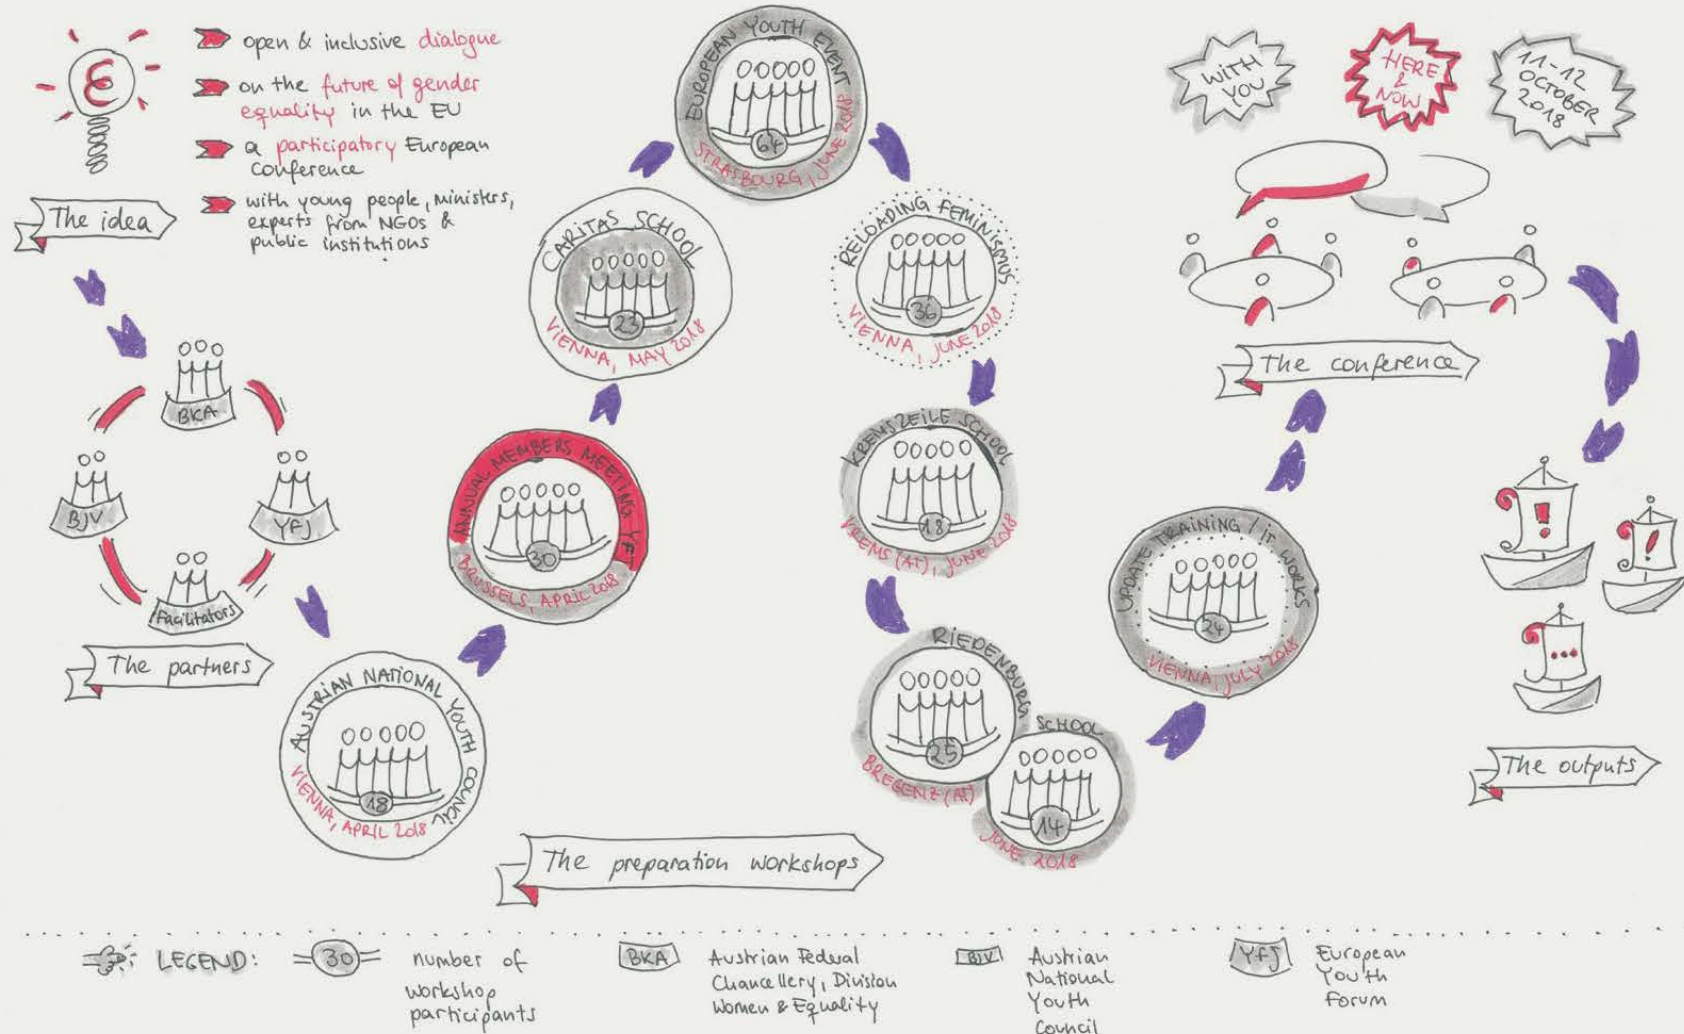 €
open & inclusive dialogue
on the future of gender
equality in the EU
a participatory European
conference
with young people, ministers,
experts from NGOs &
public institutions
The idea
BKA
BJV
YFJ
Facilitators
The partners
AUSTRIAN NATIONAL YOUTH COUNCIL
18
VIENNA, APRIL 2018
ANNUAL MEMBERS MEETING YFJ
30
BRUSSELS, APRIL 2018
CARITAS SCHOOL
23
VIENNA, MAY 2018
EUROPEAN YOUTH EVENT
64
STRASBOURG, JUNE 2018
RELOADING FEMINISMUS
36
VIENNA, JUNE 2018
KREMSZEILE SCHOOL
18
KREMS (AT), JUNE 2018
RIEDENBURG
SCHOOL
25
BREGENZ (AT)
14
JUNE 2018
UPDATE TRAINING / IT WORKS
24
VIENNA, JULY 2018
The preparation workshops
WITH
YOU
HERE
&
NOW
11-12
OCTOBER
2018
The conference
!
!
...
The outputs
LEGEND:
30
number of
workshop
participants
BKA
Austrian Federal
Chancellery, Division
Women & Equality
BJV
Austrian
National
Youth
Council
YFJ
European
Youth
Forum